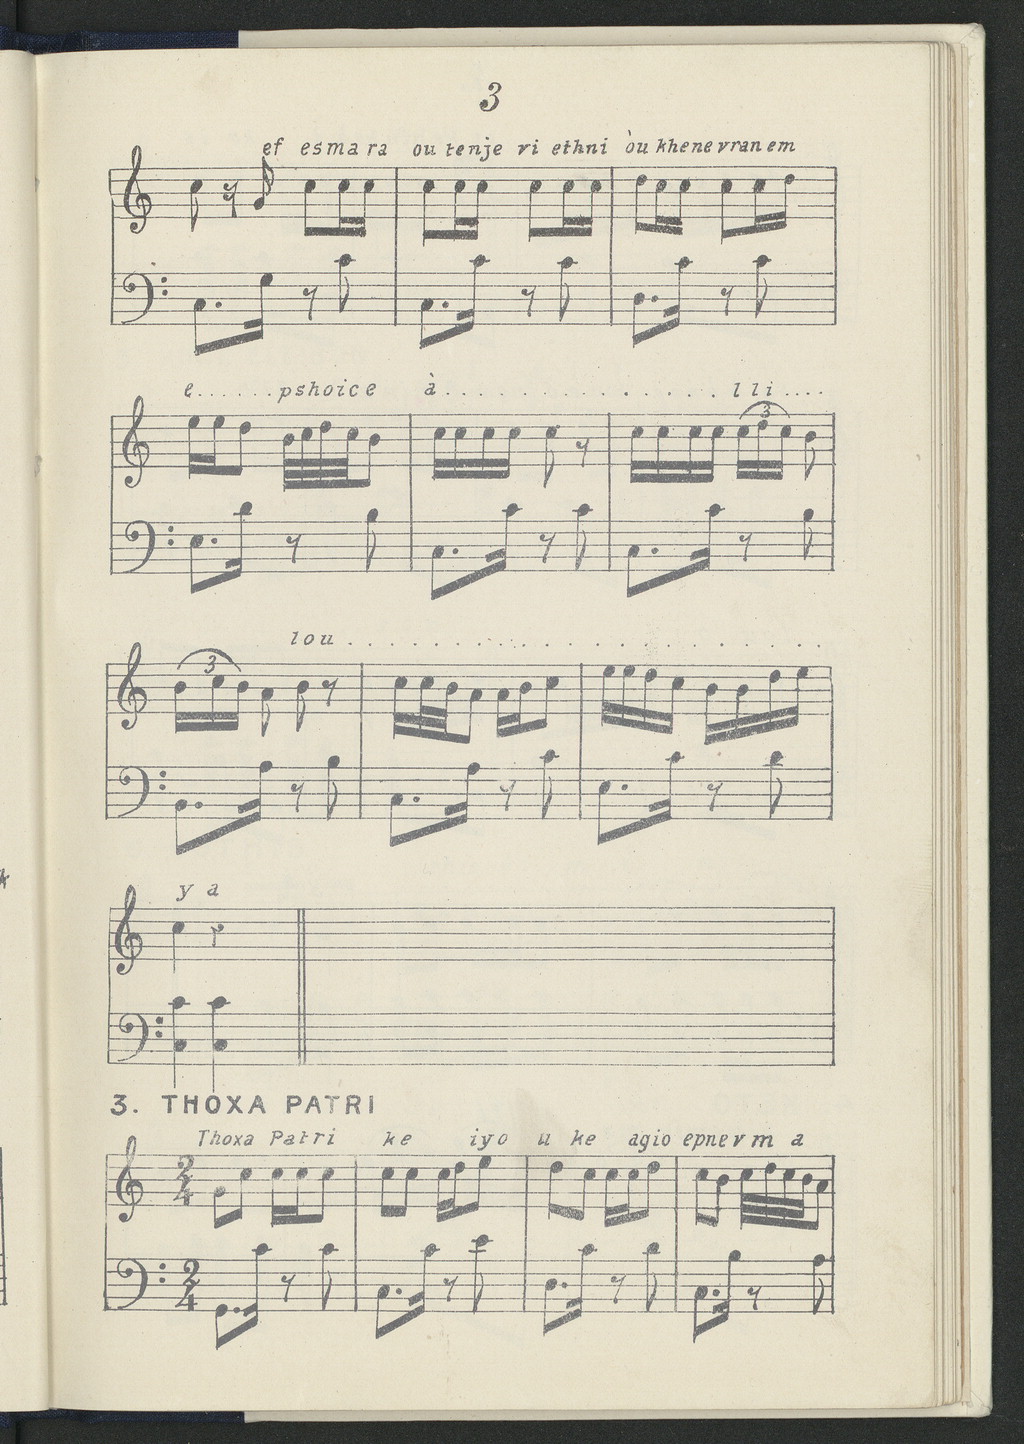 3
ef esmara ou tenje vi ethni òu khenevranem
e......pshoice à..............lli....
3
lou......................
3
y a
3. THOXA PATRI
Thoxa Patri ke iyo u ke agio epnevm a
2
4
2
4